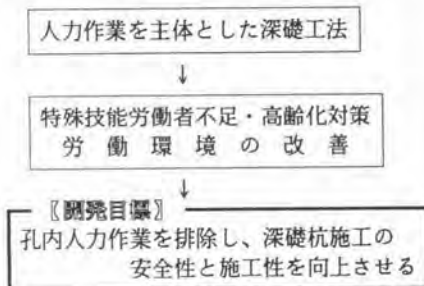 人力作業を主体とした深礎工法
↓
特殊技能労働者不足・高齢化対策
労働環境の改善
↓
〖開発目標〗
孔内人力作業を排除し、深礎杭施工の
安全性と施工性を向上させる